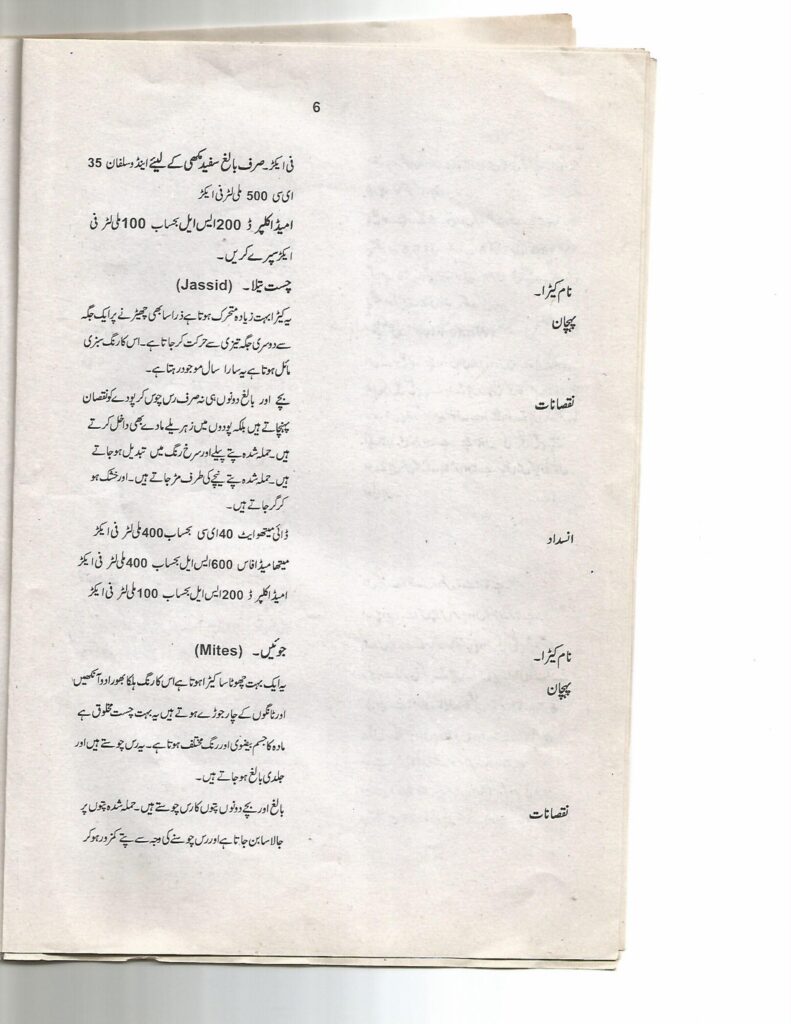 6
فی ایکڑ۔ صرف بالغ سفید مکھی کے لیئے اینڈوسلفان 35
ای سی 500 ملی لٹر فی ایکڑ
امیڈاکلپر ڈ 200 ایس ایل بحساب 100 ملی لٹر فی
ایکڑ سپرے کریں۔
نام کیڑا۔ چست تیلا۔ (Jassid)
پہچان یہ کیڑا بہت زیادہ متحرک ہوتا ہے ذرا سا بھی چھیڑنے پر ایک جگہ
سے دوسری جگہ تیزی سے حرکت کر جاتا ہے۔ اس کا رنگ سبزی
مائل ہوتا ہے یہ سارا سال موجود رہتا ہے۔
نقصانات بچے اور بالغ دونوں ہی نہ صرف رس چوس کر پودے کو نقصان
پہنچاتے ہیں بلکہ پودوں میں زہریلے مادے بھی داخل کرتے
ہیں۔ حملہ شدہ پتے پیلے اور سرخ رنگ میں تبدیل ہو جاتے
ہیں۔ حملہ شدہ پتے نیچے کی طرف مڑ جاتے ہیں۔ اور خشک ہو
کر گر جاتے ہیں۔
انسداد ڈائی میتھوایٹ 40 ای سی بحساب 400 ملی لٹر فی ایکڑ
میتھا میڈافاس 600 ایس ایل بحساب 400 ملی لٹر فی ایکڑ
امیڈ اکلپر ڈ 200 ایس ایل بحساب 100 ملی لٹر فی ایکڑ
نام کیڑا۔ جوئیں۔ (Mites)
پہچان یہ ایک بہت چھوٹا سا کیڑا ہوتا ہے اس کا رنگ ہلکا بھورا دو آنکھیں
اور ٹانگوں کے چار جوڑے ہوتے ہیں یہ بہت چست مخلوق ہے
مادہ کا جسم بیضوی اور رنگ مختلف ہوتا ہے۔ یہ رس چوستے ہیں اور
جلدی بالغ ہو جاتے ہیں۔
نقصانات بالغ اور بچے دونوں پتوں کا رس چوستے ہیں۔ حملہ شدہ پتوں پر
جالا سا بن جاتا ہے اور رس چوسنے کی وجہ سے پتے کمزور ہو کر